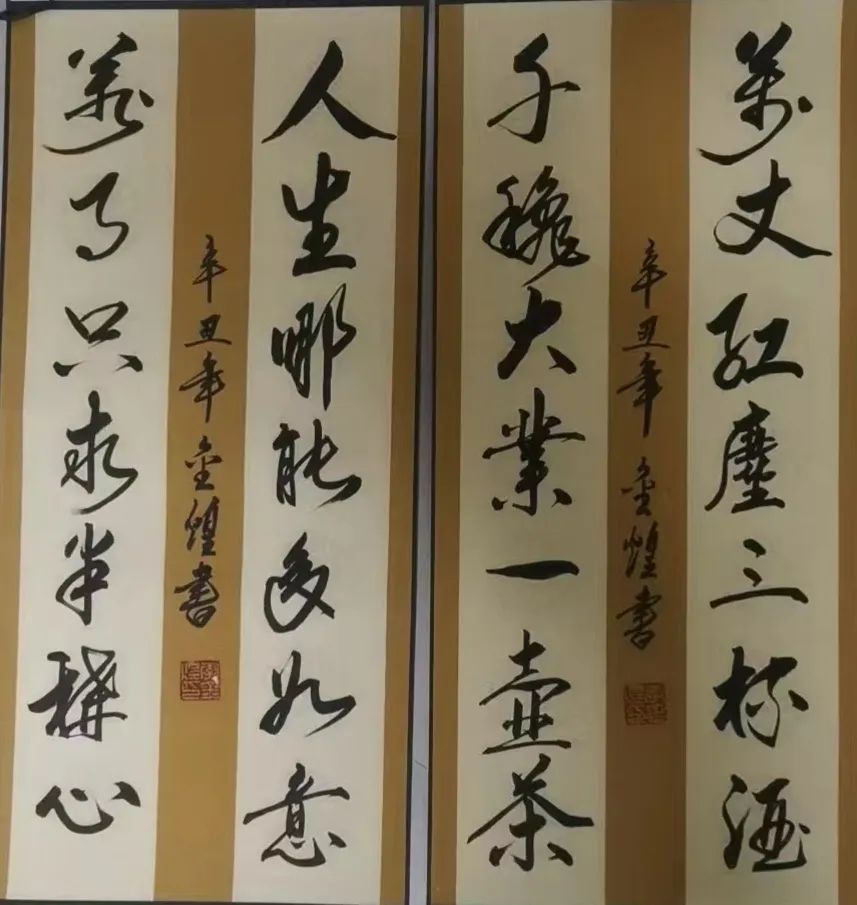 萬丈紅塵三杯酒
辛丑年金煌書
千穐大業一壺茶
人生哪能多如意
辛丑年金煌書
萬事只求半稱心